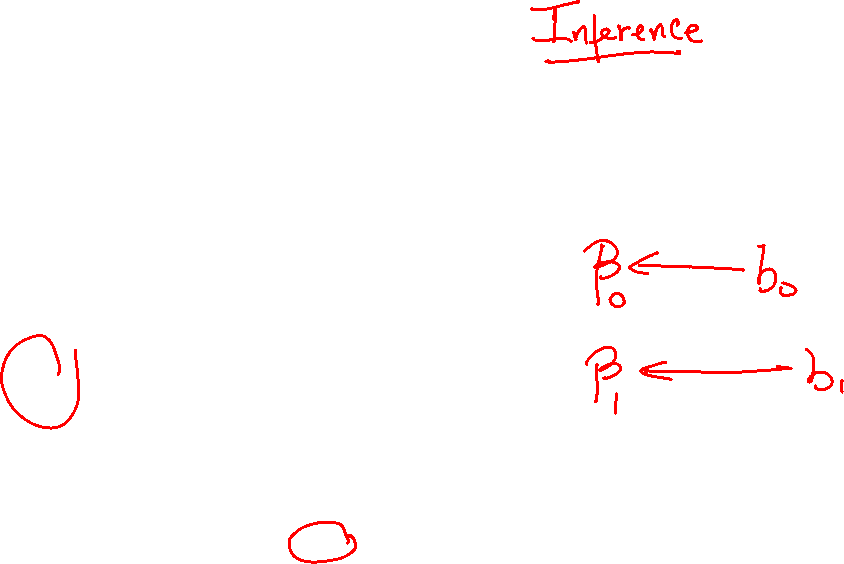 Inference
β₀ ← b₀
β₁ ← b₁